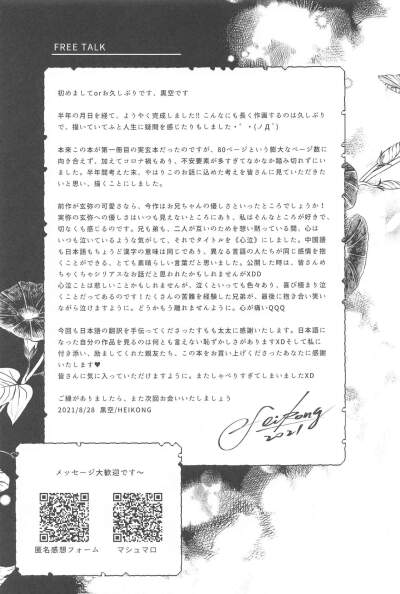 FREE TALK
初めましてorお久しぶりです、黒空です
半年の月日を経て、ようやく完成しました!! こんなにも長く作画するのは久しぶり
で、描いていてふと人生に疑問を感じたりもしました・゜・(ノД`)
本来この本が第一冊目の実玄本だったのですが、80ページという膨大なページ数に
向き合えず、加えてコロナ禍もあり、不安要素が多すぎてなかなか踏み切れずにい
ました。半年間考えた末、やはりこのお話に込めた考えを皆さんに見ていただきた
いと思い、描くことにしました。
前作が玄弥の可愛さなら、今作はお兄ちゃんの優しさといったところでしょうか！
実弥の玄弥への優しさはいつも見えないところにあり、私はそんなところが好きで、
切なくも感じるのです。兄も弟も、二人が互いのためを想い黙っている間、心は
いつも泣いているような気がして、それでタイトルを《心泣》にしました。中国語
も日本語もちょうど漢字の意味は同じであり、異なる言語の人たちが同じ感情を抱
くことができる、とても素晴らしい言葉だと思いました。公開した時は、皆さんめ
ちゃくちゃシリアスなお話だと思われたかもしれませんがXDD
心泣ことは悲しいことかもしれませんが、泣くといっても色々あり、喜びが極まり泣
くことだってあるのです！たくさんの苦難を経験した兄弟が、最後に抱き合い笑い
ながら泣けますように。どうかもう離れませんように。心が痛いQQQ
今回も日本語の翻訳を手伝ってくださったすもも太太に感謝いたします。日本語にな
った自分の作品を見るのは何とも言えない恥ずかしさがありますXDそして私に
付き添い、励ましてくれた親友たち、この本をお買い上げくださったあなたに感謝
いたします♥
皆さんに気に入っていただけますように。またしゃべりすぎてしまいましたXD
ご縁がありましたら、また次回お会いいたしましょう
2021/8/28 黒空/HEIKONG
Heikong
2021
メッセージ大歓迎です〜
匿名感想フォーム
マシュマロ